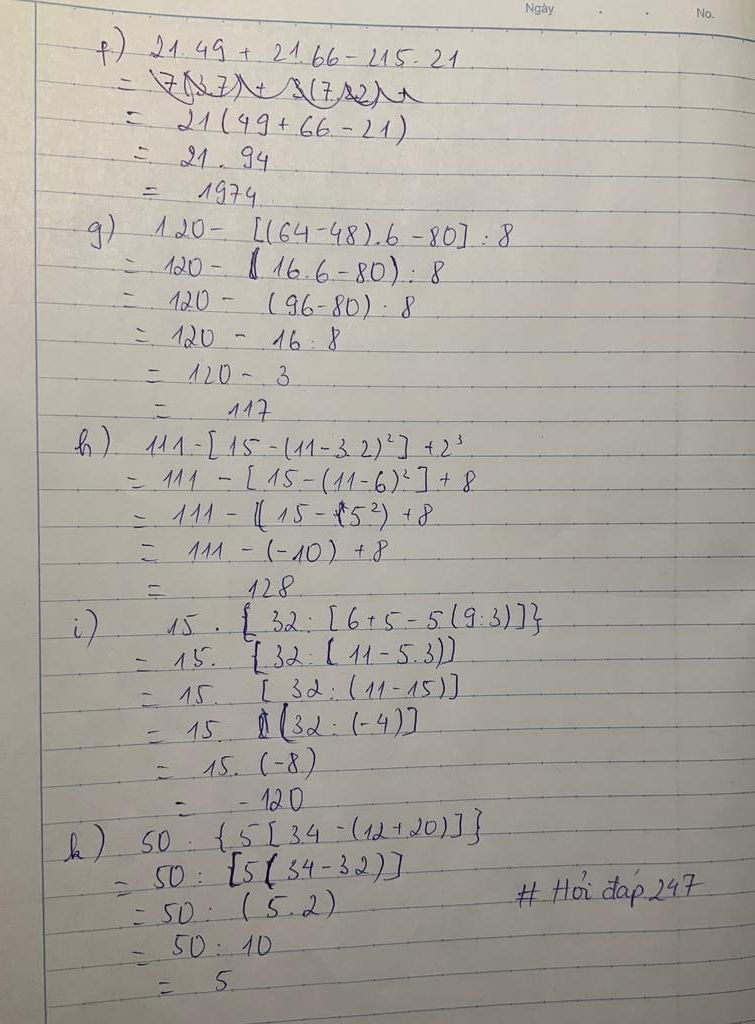 Ngày . . No.
f) 21.49 + 21.66 - 215.21
= 21(49+66-21)
= 21.94
= 1974
g) 120 - [(64-48).6-80] : 8
= 120 - (16.6-80) : 8
= 120 - (96-80) : 8
= 120 - 16 : 8
= 120 - 3
= 117
h) 111-[15-(11-3.2)²]+2³
= 111 - [15-(11-6)²] + 8
= 111 - (15-5²) +8
= 111 - (-10) +8
= 128
i) 15 . { 32 : [6+5-5(9:3)]}
= 15. [32: ( 11-5.3)]
= 15. [ 32 : (11-15)]
= 15 [32 : (-4)]
= 15. (-8)
= -120
k) 50 : {5[34-(12+20)]}
= 50 : [5(34-32)]
= 50 : (5.2)
= 50 : 10
= 5
# Hỏi đáp 247